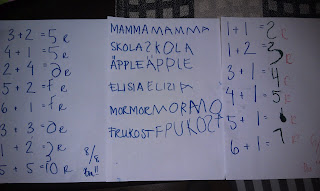 3+2=5 R
4+1=5 R
2+4=6 R
5+2=7 R
6+1=7 R
3+3=6 R
1+2=3 R
5+5=10 R
8/8
Bra!!
MAMMA MAMMA
SKOLA SKOLA
ÄPPLE ÄPPLE
ELISIA ELIZIA
MORMOR MORMO
FRUKOST FPUKOST
1+1=2 R
1+2=3 R
3+1=4 R
4+1=5 R
5+1=6 R
6+1=7 R